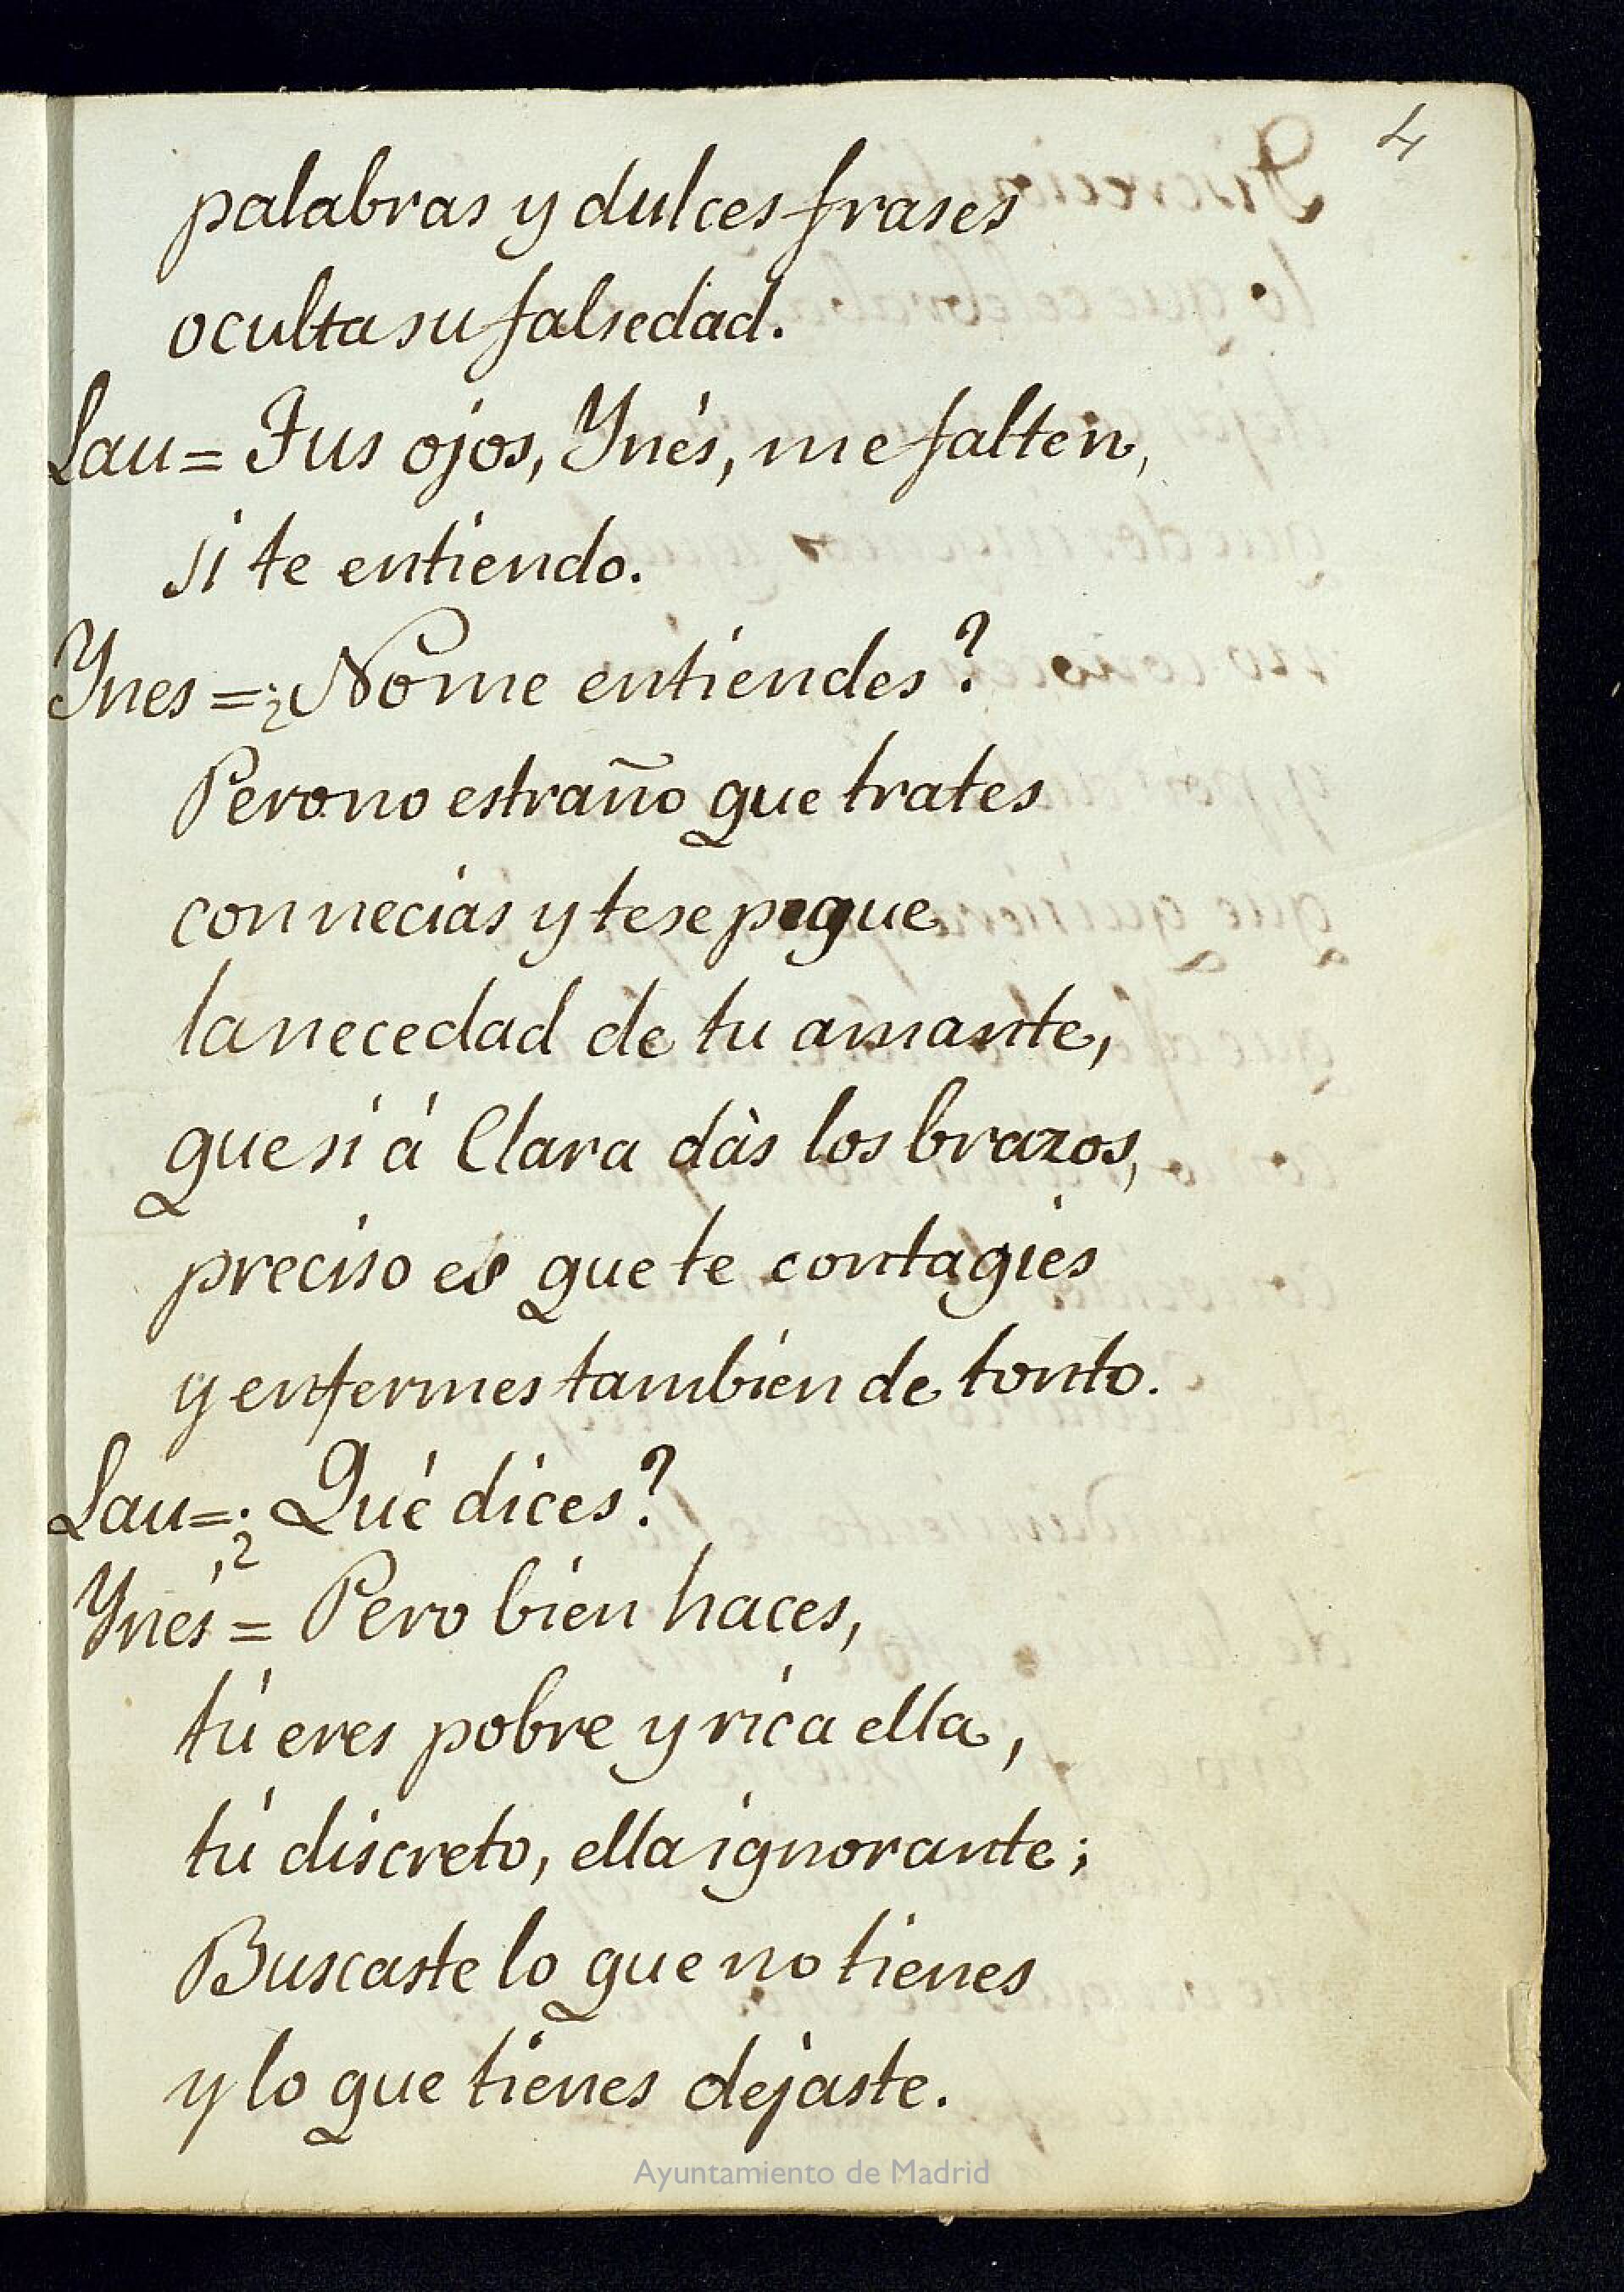 4
palabras y dulces frases
oculta su falsedad.
Lau = Tus ojos, Ynés, me falten,
si te entiendo.
Ynes = ¿No me entiendes?
Pero no estraño que trates
con necias y te se pegue
la necedad de tu amante,
que si á Clara dàs los brazos,
preciso es que te contagies
y enfermes tambien de tonto.
Lau = ¿Qué dices?
Ynés = Pero bien haces,
tú eres pobre y rica ella,
tú discreto, ella ignorante;
Buscaste lo que no tienes
y lo que tienes dejaste.
Ayuntamiento de Madrid